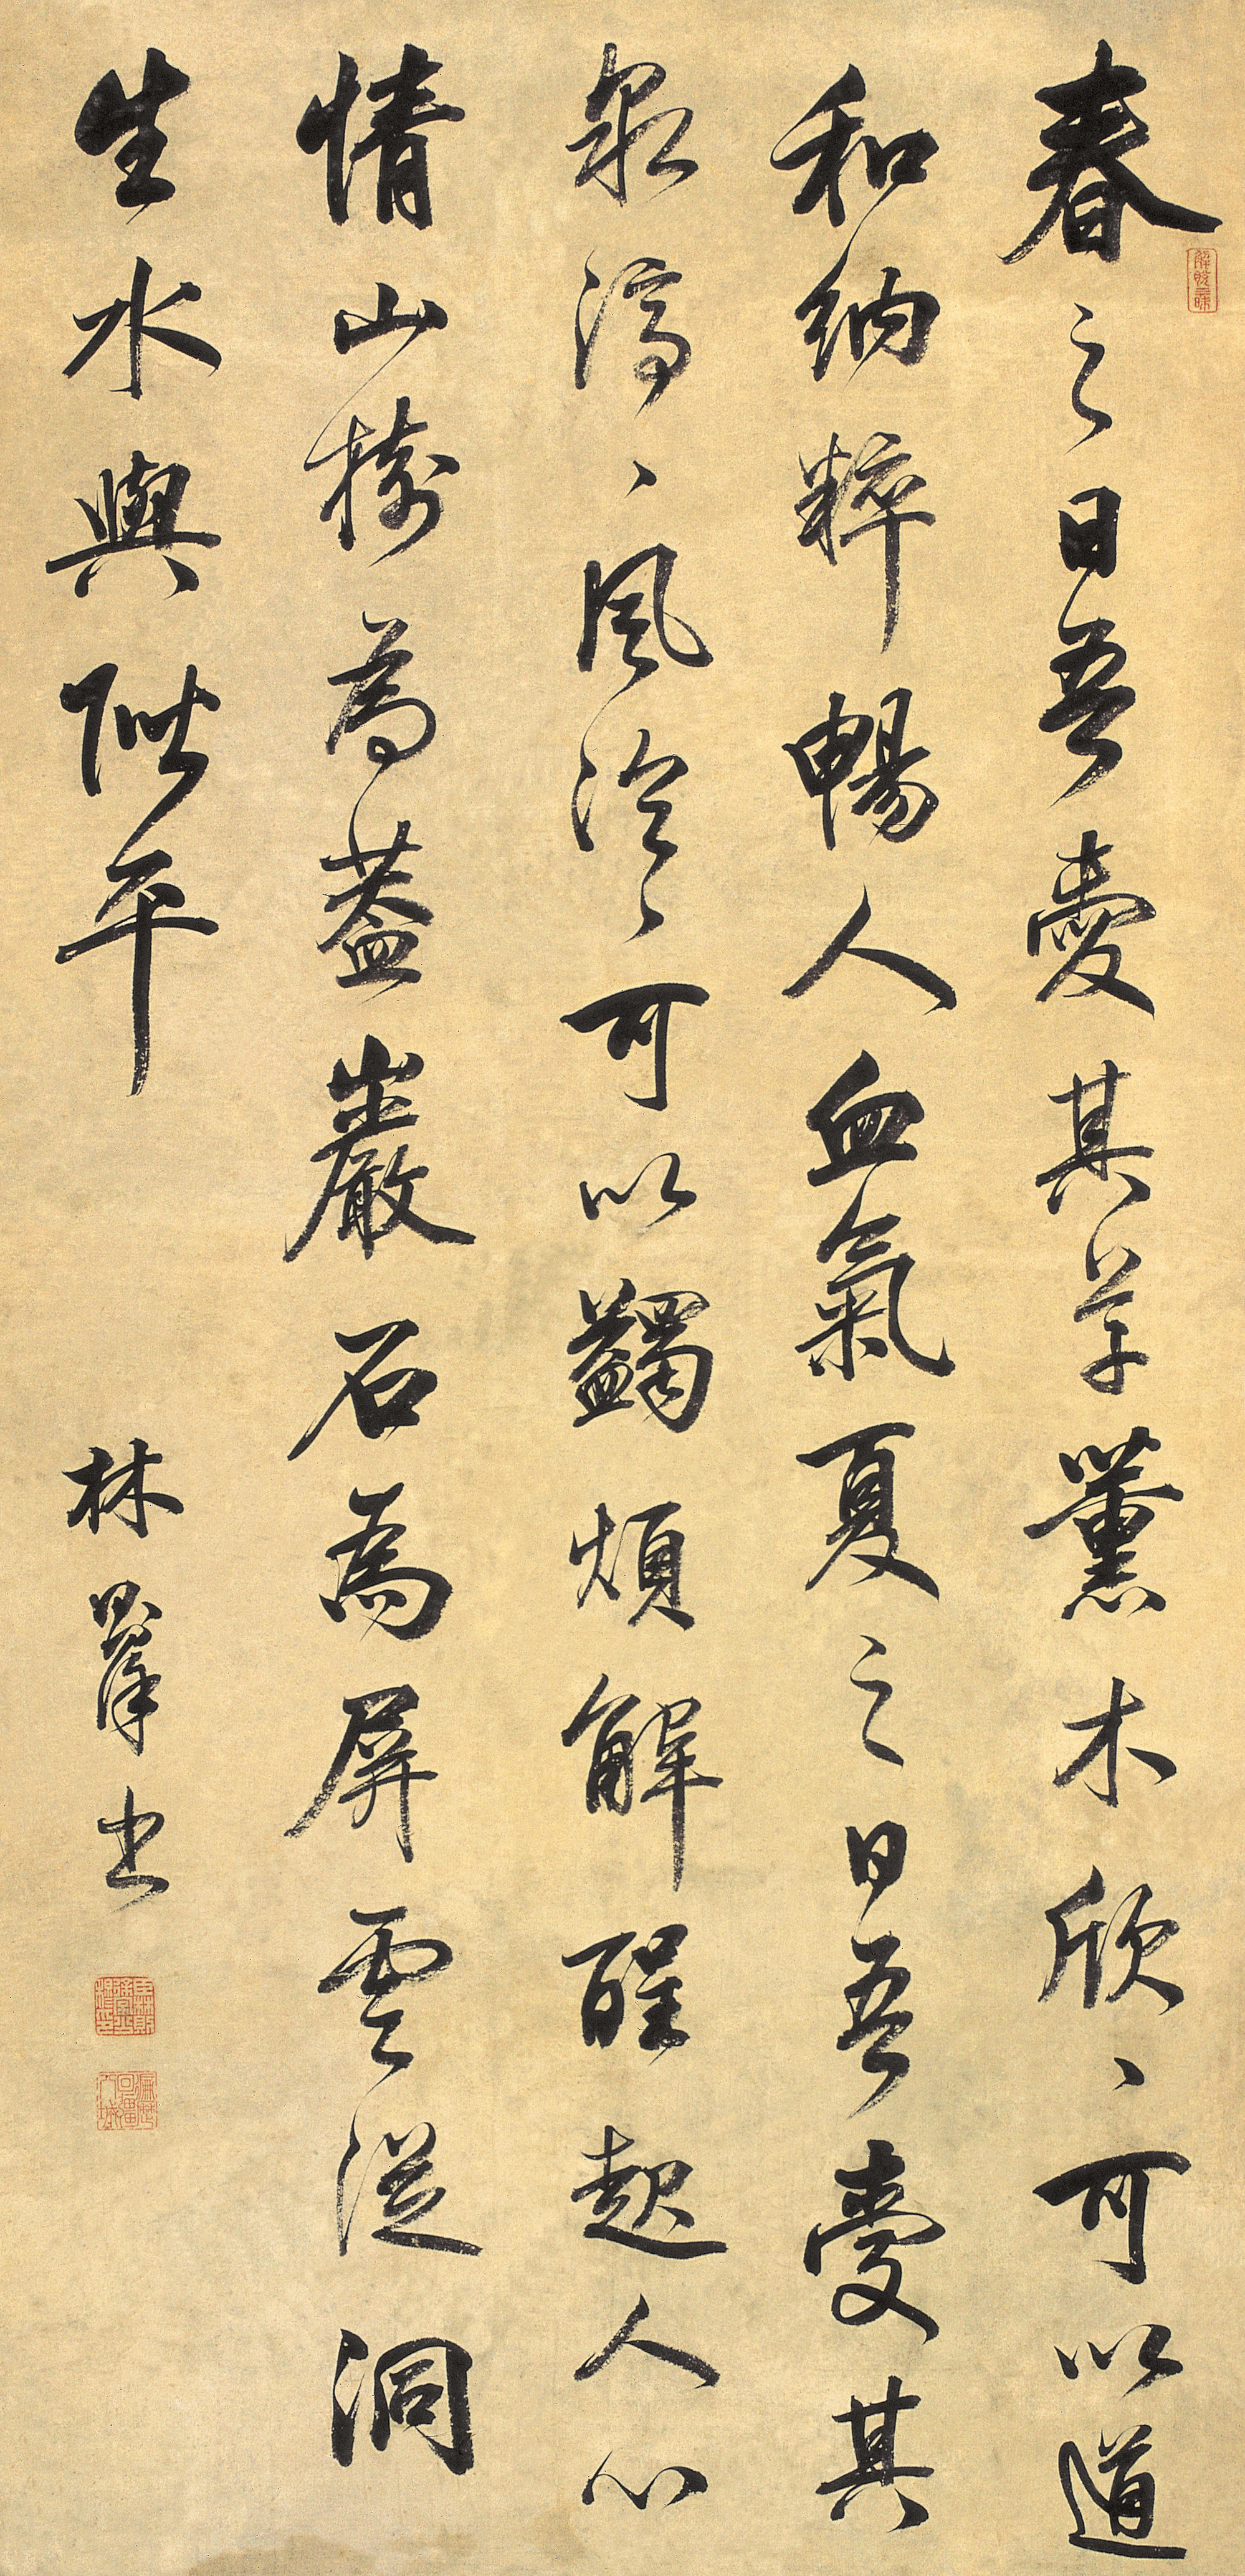 春之日吾愛其草薰木欣〻可以道
和納粹暢人血氣夏之日吾愛其
泉渟〻風泠〻可以蠲煩解酲起人心
情山樹為蓋巖石為屏雲從洞
生水與階平
林則徐書
臣林則徐字少穆印